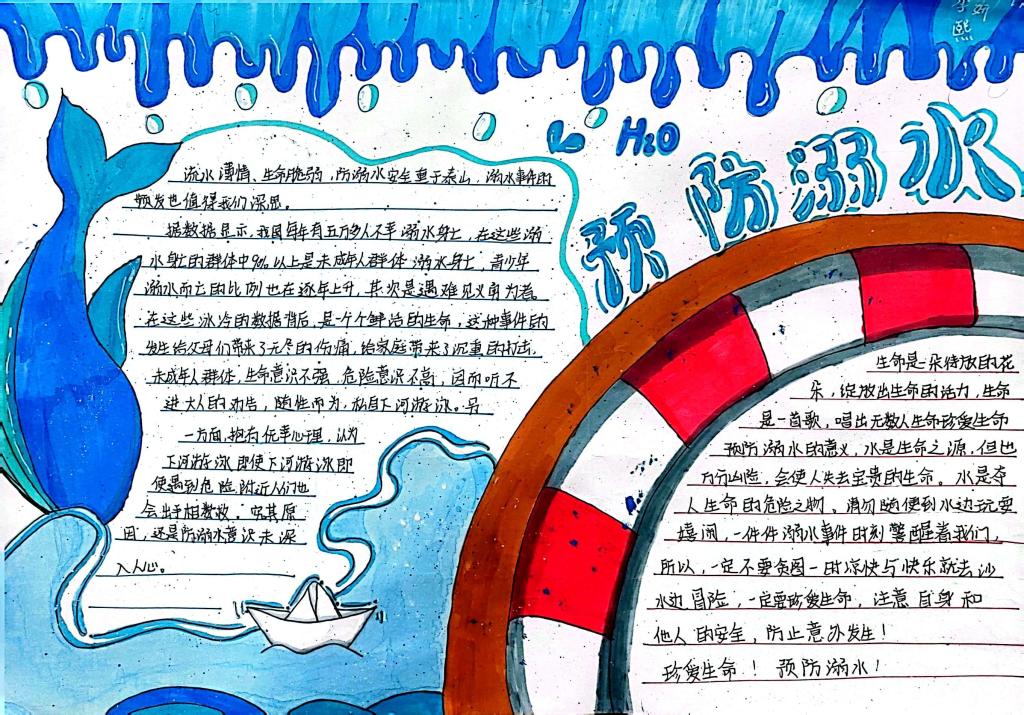 李妍
熙
H2O
预防溺水
流水薄情、生命脆弱,防溺水安全重于泰山,溺水事件的
频发也值得我们深思。
据数据显示,我国每年有五万多人不幸溺水身亡,在这些溺
水身亡的群体中90%以上是未成年人群体溺水身亡,青少年
溺水而亡的比例也在逐年上升,其次是遇难见义勇为者。
在这些冰冷的数据背后,是一个个鲜活的生命,这种事件的
发生给父母们带来了无尽的伤痛,给家庭带来了沉重的打击。
未成年人群体,生命意识不强、危险意识不高,因而听不
进大人的劝告,随性而为,私自下河游泳。另
一方面,抱有侥幸心理,认为
下河游泳即使下河游泳即
使遇到危险,附近人们也
会出手相救救。究其原
因,还是防溺水意识未深
入人心。
生命是一朵待放的花
朵,绽放出生命的活力,生命
是一首歌,唱出无数人生命珍爱生命
预防溺水的意义,水是生命之源,但也
万分凶险,会使人失去宝贵的生命。水是夺
人生命的危险之物,请勿随便到水边玩耍
嬉闹,一件件溺水事件时刻警醒着我们,
所以,一定不要贪图一时凉快与快乐就去沙
水边冒险,一定要珍爱生命,注意自身和
他人的安全,防止意外发生!
珍爱生命!预防溺水!